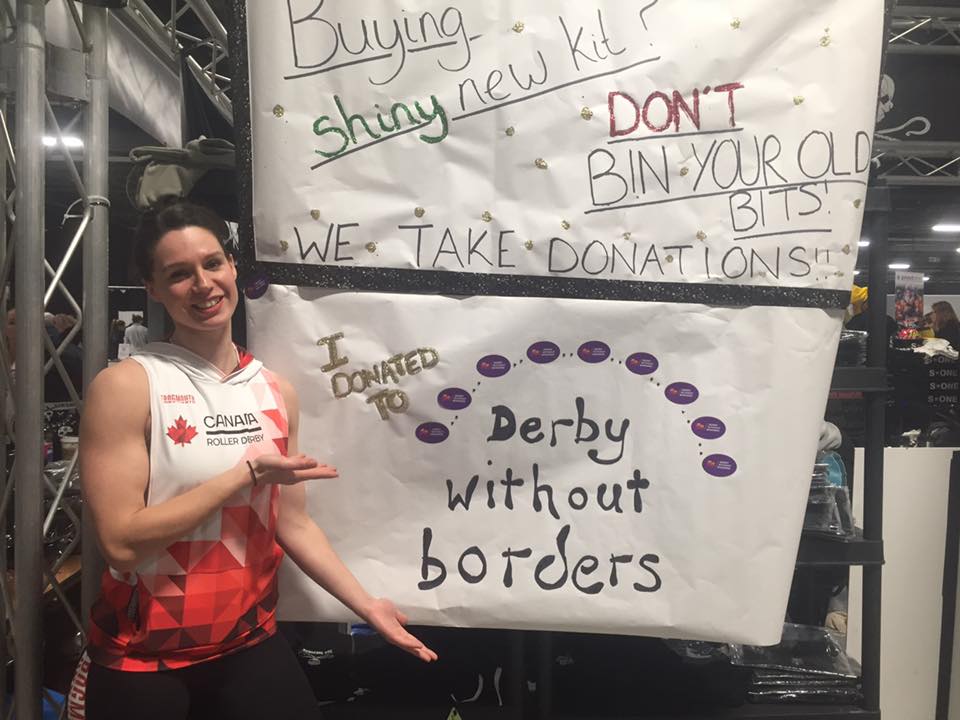 Buying
shiny new kit?
DON'T
BIN YOUR OLD
BITS!
WE TAKE DONATIONS!!
I
DONATED
TO
Derby
without
borders
FROGMOUTH
CANADA
ROLLER DERBY
S-ONE